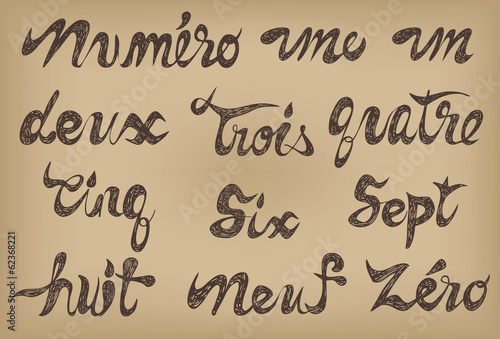 Numéro une un
deux Trois quatre
Cinq Six Sept
huit neuf Zéro
Adobe Stock | #62368221